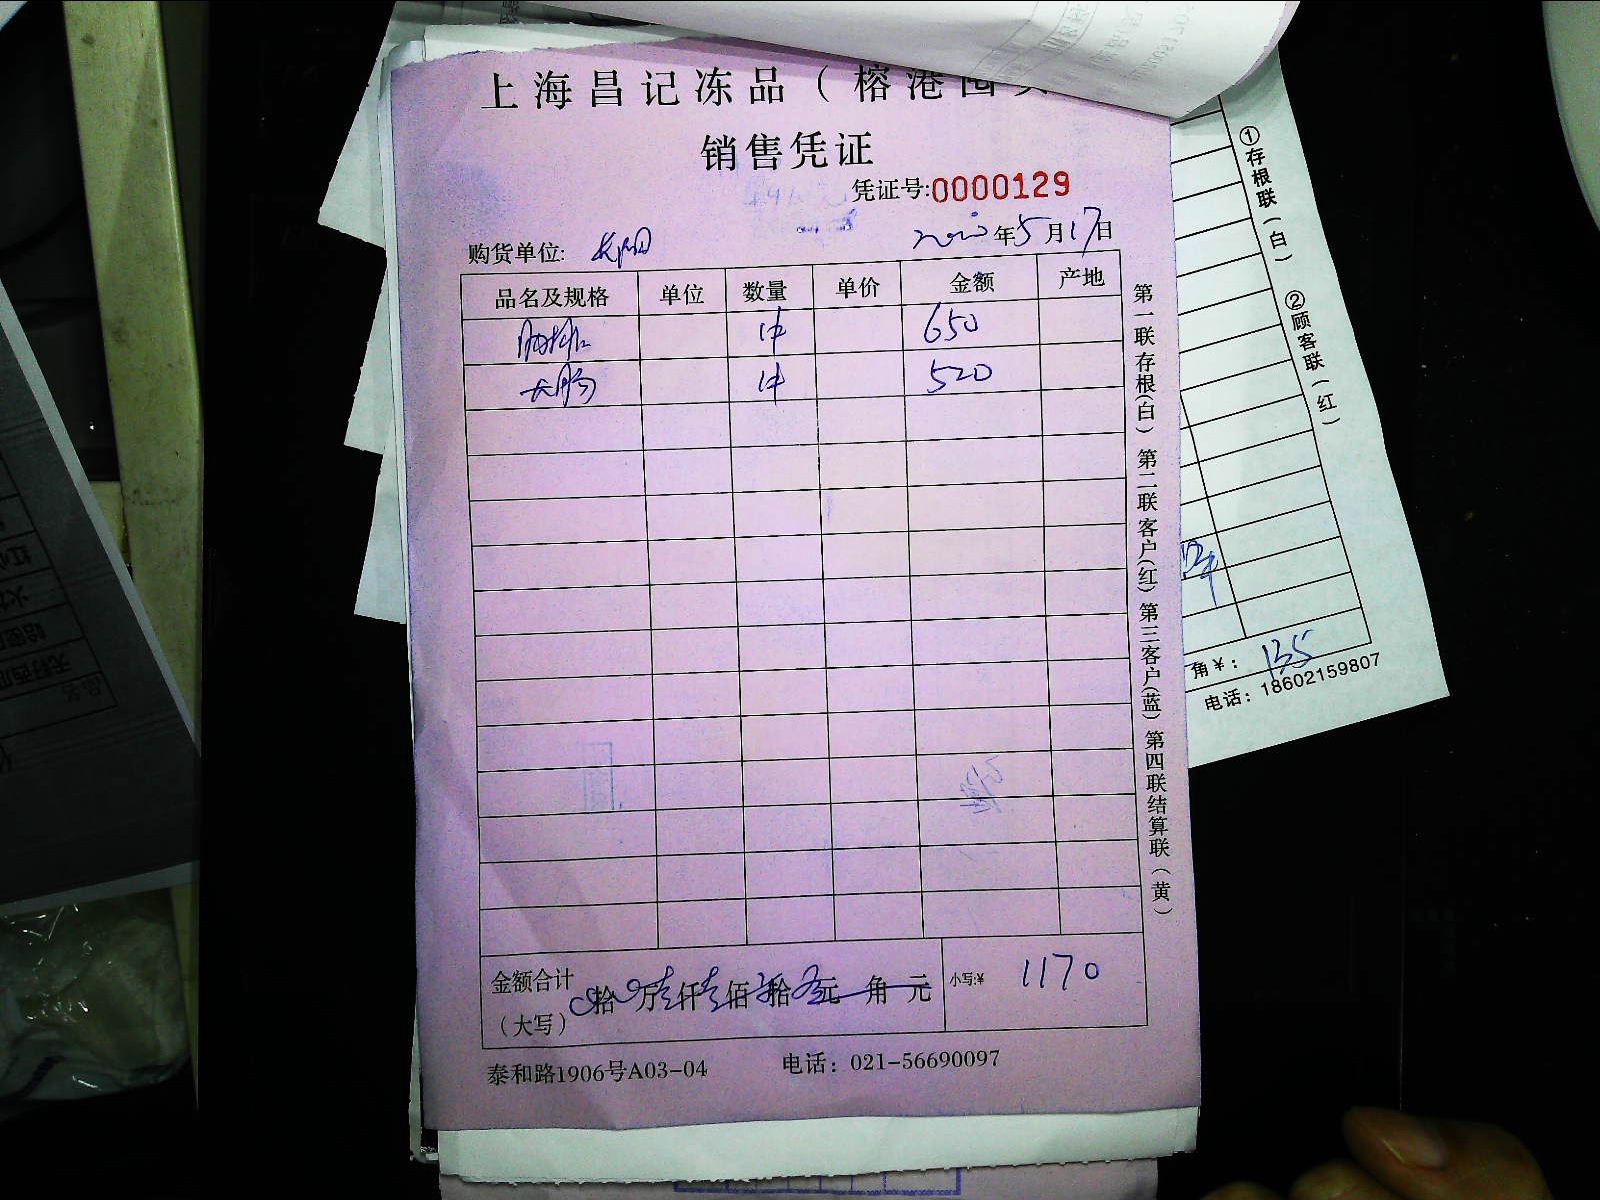 上海昌记冻品（榕港国
销售凭证
凭证号:0000129
购货单位: 年5月17日
品名及规格 单位 数量 单价 金额 产地
1件 650
大肠 1件 520
金额合计（大写） 拾 万 仟 佰 拾 元 角 元 小写:¥ 1170
泰和路1906号A03-04 电话：021-56690097
第一联存根(白) 第二联客户(红) 第三客户(蓝) 第四联结算联(黄)
①存根联(白) ②顾客联(红)
角¥: 135
电话: 18602159807